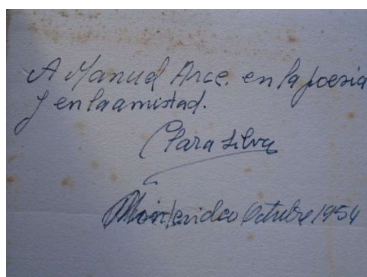 A Manuel Arce. en la poesia
y en la amistad.
Clara Silva
Montevideo Octubre 1954